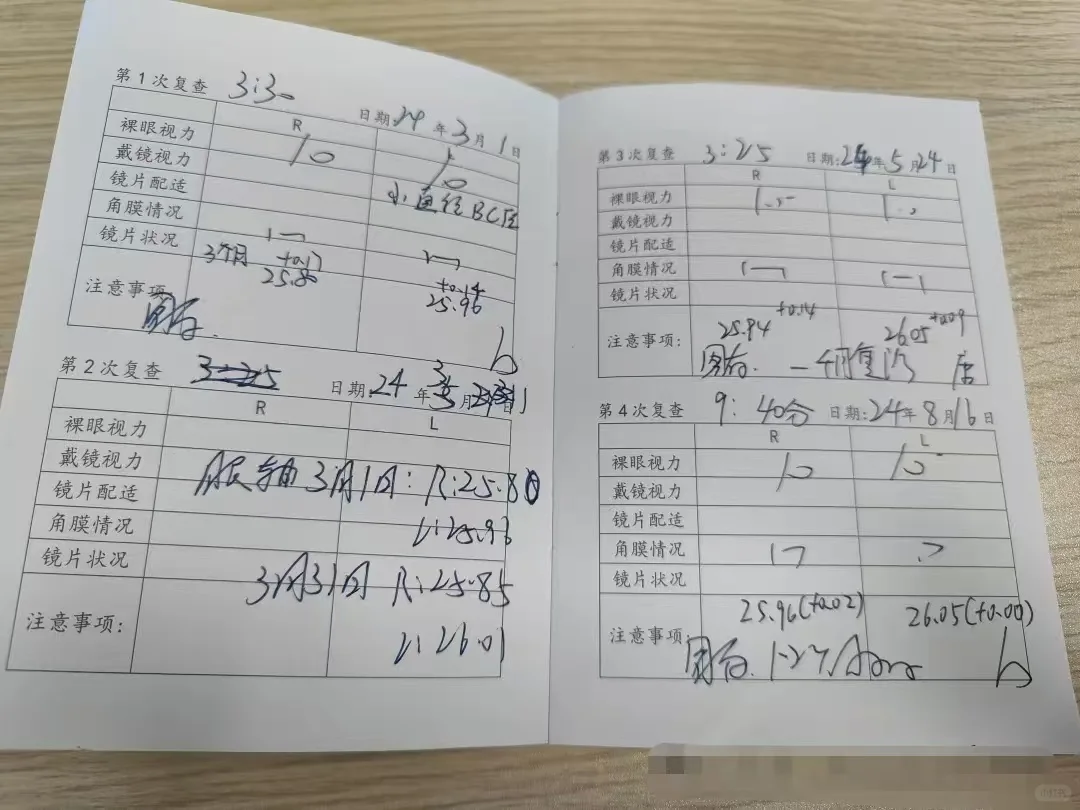 第1次复查 3:30 日期:24年3月1日
R L
裸眼视力 1.0 1.0
戴镜视力
镜片配适 小直径BC压
角膜情况
镜片状况
3个月 +0.17 +0.14
25.80 25.96
注意事项
第2次复查 3:25 日期:24年3月31日
R L
裸眼视力
戴镜视力
眼轴3月1日: R:25.80
镜片配适
角膜情况 L:25.96
镜片状况
3月31日 R:25.85
注意事项:
L:26.01
第3次复查 3:25 日期:24年5月24日
R L
裸眼视力 1.0
戴镜视力
镜片配适
角膜情况
镜片状况
25.94 +0.14 26.05 +0.09
注意事项:
第4次复查 9:40分 日期:24年8月16日
R L
裸眼视力 1.0 1.0
戴镜视力
镜片配适
角膜情况
镜片状况
25.96(+0.02) 26.05(+0.00)
注意事项
小红书